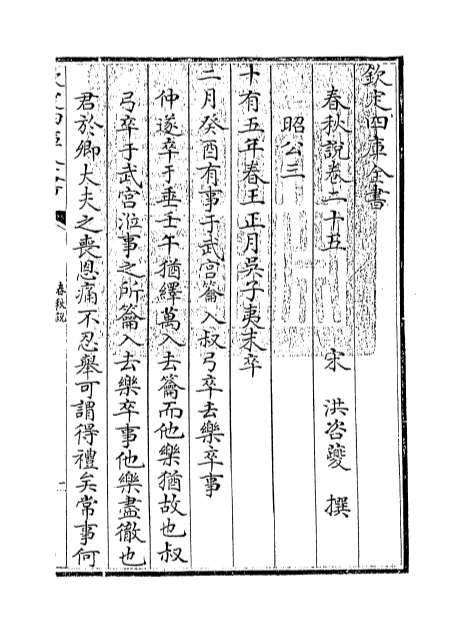 欽定四庫全書
春秋說卷二十五　　宋　洪咨夔　撰
昭公三
十有五年春王正月吳子夷末卒
二月癸酉有事于武宮籥入叔弓卒去樂卒事
仲遂卒于垂壬午猶繹萬入去籥而他樂猶故也叔
弓卒于武宮涖事之所籥入去樂卒事他樂盡徹也
君於卿大夫之喪恩痛不忍舉可謂得禮矣常事何
春秋說